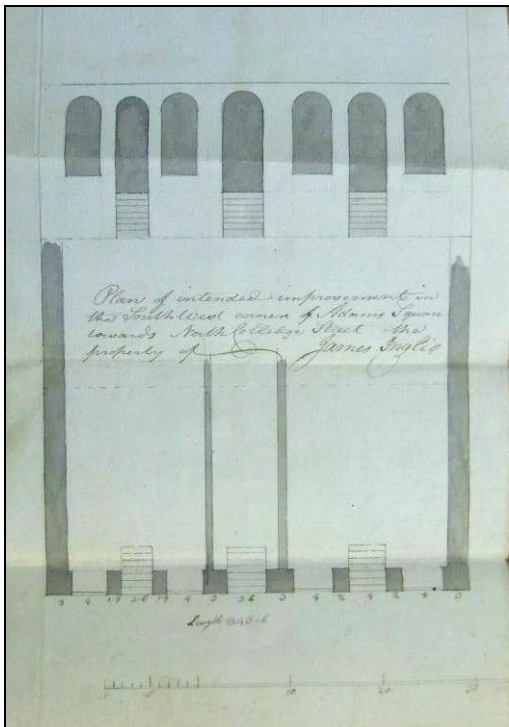 Plan of intended improvement in
the South West corner of Adams Square
towards North College Street the
property of James Inglis
3 4 2 4 3 3 4 2 4 2 4 3
Length
10 20 30